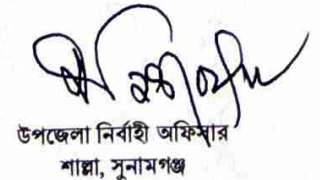 উপজেলা নির্বাহী অফিসার
শাল্লা, সুনামগঞ্জ